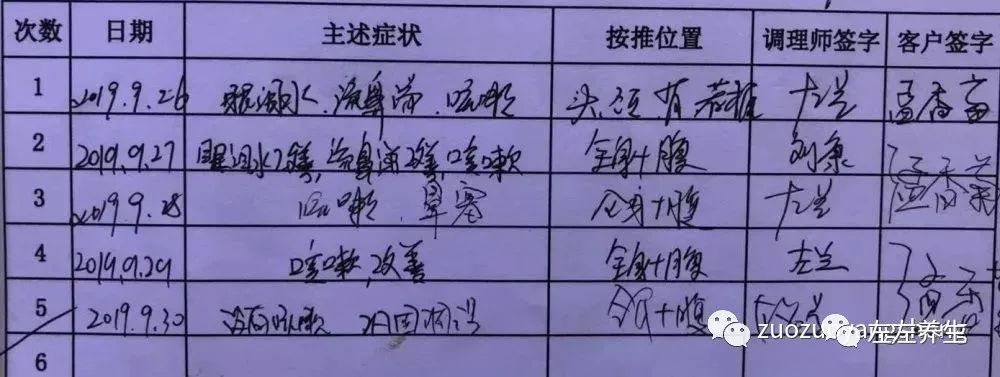 次数 日期 主述症状 按推位置 调理师签字 客户签字
1 2019.9.26 眼泪水、流鼻涕、咳嗽 头 颈 左兰
2 2019.9.27 眼泪水改善,流鼻涕改善,咳嗽 全身+腹 刘康
3 2019.9.28 咳嗽、鼻塞 全身+腹 左兰
4 2019.9.29 咳嗽改善 全身+腹 左兰
5 2019.9.30 咳嗽 +腹
6
左左养生